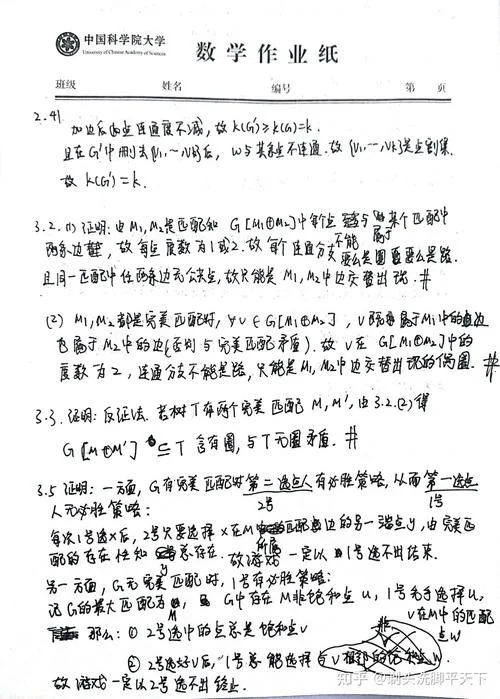 中国科学院大学
University of Chinese Academy of Sciences
数学作业纸
班级 姓名 编号 第 页
2.41
加边后点连通度不减,故 k(G')≥k(G)=k.
且在G'中删去{v₁,…,vₖ}后,w与其余点不连通.故{v₁,…,vₖ}是点割集.
故 k(G')=k.
3.2.(1) 证明:由M₁,M₂是匹配知 G[M₁⊕M₂]中每个点 与 某个匹配中
两条边 ,故每点度数为1或2.故每个连通分支 要么是圈 要么是路.
且同一匹配中任两条边无公共点,故只能是M₁,M₂中边交替出现.#
(2) M₁,M₂都是完美匹配时,∀v∈G[M₁⊕M₂],v既 属于M₁中的边
也属于M₂中的边(否则与完美匹配矛盾).故v在G[M₁⊕M₂]中的
度数为2,连通分支不能是路,只能是M₁,M₂中边交替出现的偶圈.#
3.3.证明:反证法.若树T有两个完美匹配M,M',由3.2.(2)得
G[M⊕M']⊆T 含有圈,与T无圈矛盾.#
3.5 证明:一方面,G有完美匹配时第二选点人有必胜策略,从而第一选点
2号 1号
人无必胜策略:
每次1号选x后,2号只要选择x在M 匹配 边的另一端点y,由完美匹
配的存在性知 y总存在.故游戏一定以1号选不出结束.
另一方面,G无完美匹配时,1号有必胜策略:
记G的最大匹配为M, G中存在M非饱和点u,1号先手选择u,
那么:① 2号选中的点总是饱和点v
v在M中的匹配
点w
② 2号选好v后,1号总能选择
故游戏一定以2号选不出结束.
知乎 @剁头洗脚平天下